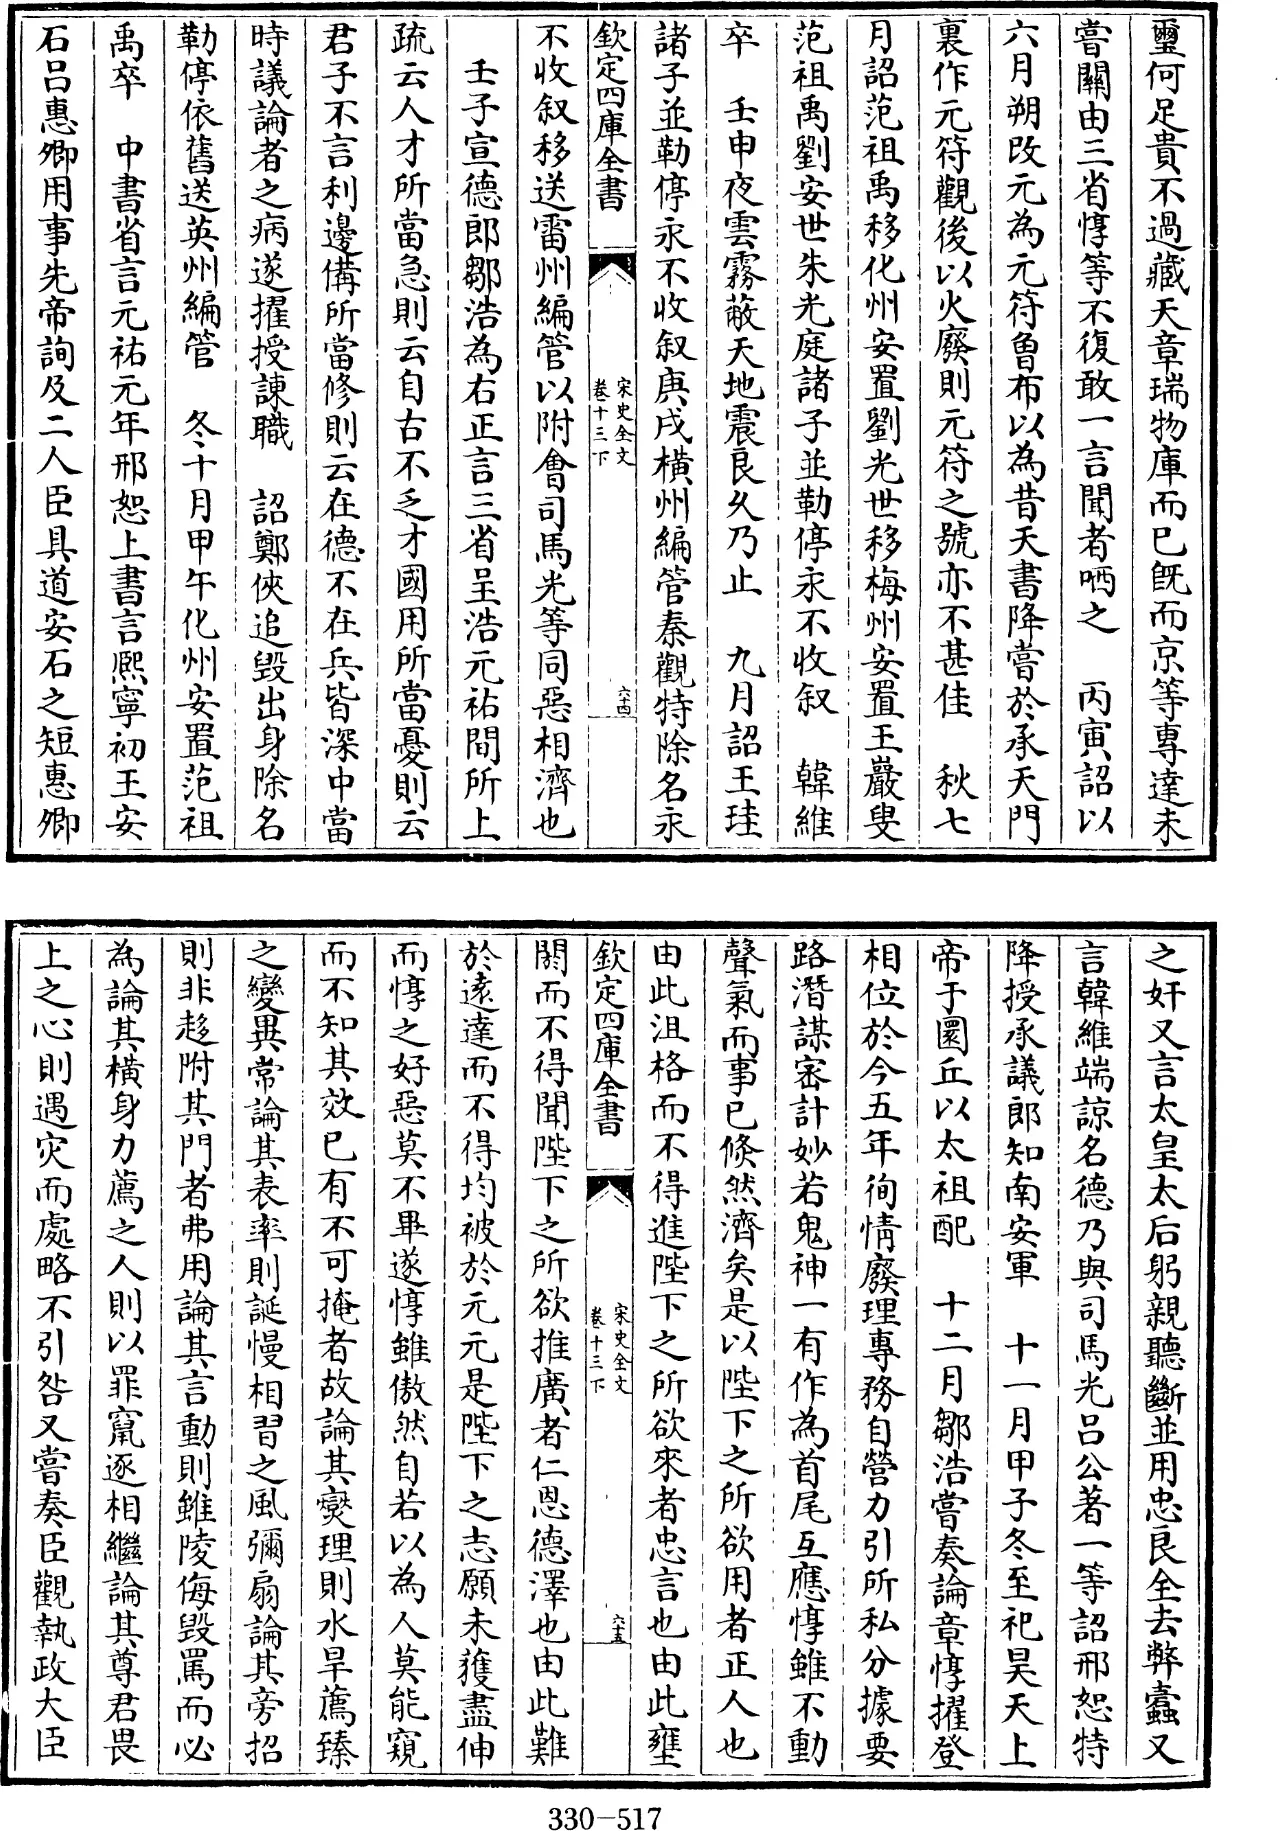 璽何足貴不過藏天章瑞物庫而已既而京等專達未
嘗關由三省惇等不復敢一言聞者哂之　丙寅詔以
六月朔改元為元符曾布以為昔天書降嘗於承天門
裏作元符觀後以火廢則元符之號亦不甚佳　秋七
月詔范祖禹移化州安置劉光世移梅州安置王巖叟
范祖禹劉安世朱光庭諸子並勒停永不收叙　韓維
卒　壬申夜雲霧蔽天地震良乆乃止　九月詔王珪
諸子並勒停永不收叙庚戌横州編管秦觀特除名永
欽定四庫全書
宋史全文
卷十三下
六十四
不收叙移送雷州編管以附會司馬光等同惡相濟也
壬子宣德郎鄒浩為右正言三省呈浩元祐間所上
疏云人才所當急則云自古不乏才國用所當憂則云
君子不言利邊備所當修則云在德不在兵皆深中當
時議論者之病遂擢授諫職　詔鄭俠追毁出身除名
勒停依舊送英州編管　冬十月甲午化州安置范祖
禹卒　中書省言元祐元年邢恕上書言熈寧初王安
石吕惠卿用事先帝詢及二人臣具道安石之短惠卿
之奸又言太皇太后躬親聽斷並用忠良全去弊蠹又
言韓維端諒名德乃與司馬光吕公著一等詔邢恕特
降授承議郎知南安軍　十一月甲子冬至祀昊天上
帝于圜丘以太祖配　十二月鄒浩嘗奏論章惇擢登
相位於今五年徇情廢理專務自營力引所私分據要
路潛謀宻計妙若鬼神一有作為首尾互應惇雖不動
聲氣而事已倐然濟矣是以陛下之所欲用者正人也
由此沮格而不得進陛下之所欲來者忠言也由此壅
欽定四庫全書
宋史全文
卷十三下
六十五
閼而不得聞陛下之所欲推廣者仁恩德澤也由此難
於逺達而不得均被於元元是陛下之志願未獲盡伸
而惇之好惡莫不畢遂惇雖傲然自若以為人莫能窺
而不知其效已有不可掩者故論其爕理則水旱薦臻
之變異常論其表率則誕慢相習之風彌扇論其旁招
則非趍附其門者弗用論其言動則雖陵侮毁罵而必
為論其橫身力薦之人則以罪竄逐相繼論其尊君畏
上之心則遇灾而處略不引咎又嘗奏臣觀執政大臣
330-517